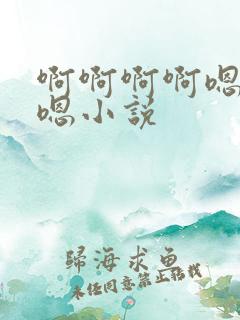 啊啊啊啊嗯
嗯小说
歸海求鱼
未经同意禁止转载